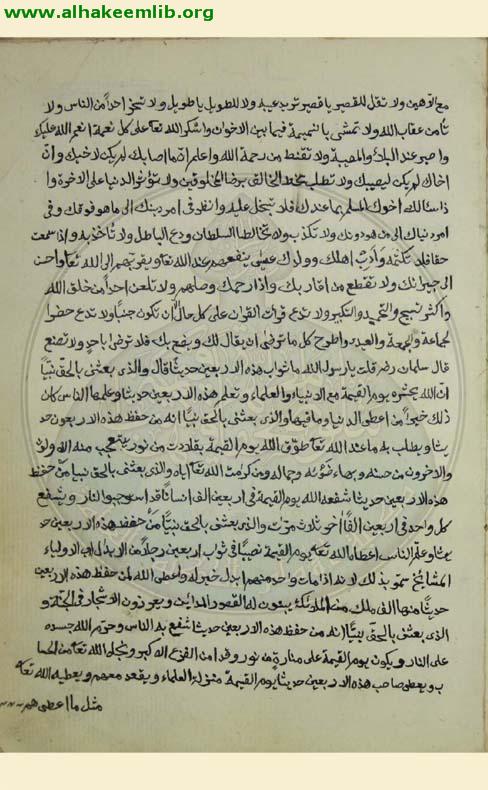 www.alhakeemlib.org
مع الآهين ولا تقل للقصير يا قصير تريد عيبه ولا للطويل يا طويل ولا تسخر احداً من الناس ولا
تأمن عقاب الله ولا تمشى بالنميمة فيما بين الاخوان واشكر الله تعا على كل نعمة انعم الله عليك
واصبر عند البلاء والمصيبة ولا تقنط من رحمة الله واعلم ان ما اصابك لم يكن لاخيك وان ما
اخاك لم يكن ليصيبك ولا تطلب سخط الخالق برضا المخلوقين ولا تؤثر الدنيا على الاخرة وا
ذا سالك اخوك المسلم بما عندك فلا تبخل عليه وانظر فى امر دينك الى ما هو فوقك وفى
امر دنياك الى من هو دونك ولا تكذب ولا تخالط السلطان ودع الباطل ولا تأخذ به واذا سمعت
حقا فلا تكتمه وادب اهلك وولدك عسى ينفعهم عند الله تعا ويقربهم الى الله تعا واحسن
الى جيرانك ولا تقطع من اقاربك واذا رحمك وصلهم ولا تلعن احداً من خلق الله
واكثر تسبيح والتحميد والتكبير ولا تدع قرات القران على كل حال الا ان تكون جنبا ولا تدع حضور
لجماعة والجمعة والعيد واطرح كل ما ترضى ان يقال لك ويفع بك فلا ترضى باحد ولا تصنع
قال سلمان رضر قلت يا رسول الله ما ثواب هذه الاربعين حديثا قال والذى بعثنى بالحق نبيّا
ان الله يحشره يوم القيمة مع الانبياء والعلماء وتعلم هذه الاربعين حديثا وعلمها الناس كان
ذلك خيراً من اعطى الدنيا وما فيها والذى بعثنى بالحق نبيا انه من حفظ هذه الاربعون حد
يثا ويطلب به ما عند الله تعا طوق الله يوم القيمة بقلادت من نور يتعجب منه الاولون
والاخرون من حسنه وبهاء ضوئه وجماله ومن كرمت الله تعا اياه والذى بعثنى بالحق نبياً من حفظ
هذه الاربعين حديثا شفعه الله يوم القيمة فى اربعين الف انسانا قد استوجبوا النار ويشفع
كل واحد فى اربعين الفا اخر ثلاث مرات والذى بعثنى بالحق نبيّا من حفظ هذه الاربعين حد
يثا وعلم الناس اعطاه الله تعا يوم القيمة نصيبا فى ثواب اربعين رجلا من الابدال اى الاولياء
المشايخ سموا بذلك لانه اذا مات واحد منهم ابدل خير له واعطى الله لمن حفظ هذه الاربعين
حديثا منها الف ملك من الملائكة يبنون له القصور المداين ويغرزون الاشجار فى الجنة و
الذى بعثنى بالحق نبيا انه من حفظ هذه الاربعين حديثا شفع به الناس وحرم الله جسده
على النار ويكون يوم القيمة على منارة من نور وقد امن الفزع الاكبر ونجاه الله تعا من الحسا
ب ويعطى صاحب هذه الاربعين حديثا يوم القيمة منزلة العلماء ويقعد معهم ويعطيه الله تعا
مثل ما اعطى هم